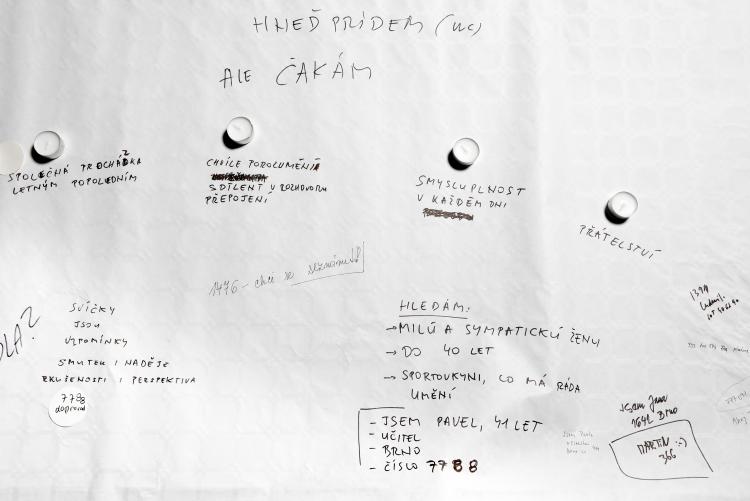 HNEĎ PRÍDEM (WC)
ALE ČAKÁM
SPOLEČNÁ PROCHÁZKA
LETNÝM POPOLEDNÍM
CHVÍLE POROZUMĚNÍ
SDÍLENÍ V ROZHOVORU
PŘEPOJENÍ
SMYSLUPLNOST
V KAŽDÉM DNI
PŘÁTELSTVÍ
1476 - chci se seznámit!!
SVÍČKY
JSOU
VZPOMÍNKY
SMUTEK I NADĚJE
ZKUŠENOSTI I PERSPEKTIVA
7788
doprava
HLEDÁM:
→ MILÚ A SYMPATICKÚ ŽENU
→ DO 40 LET
→ SPORTOVKYNI, CO MÁ RÁDA
UMĚNÍ
- JSEM PAVEL, 41 LET
- UČITEL
- BRNO
- ČÍSLO 7788
1394
Jsem Jana
1641 Brno
MARTIN :-)
366